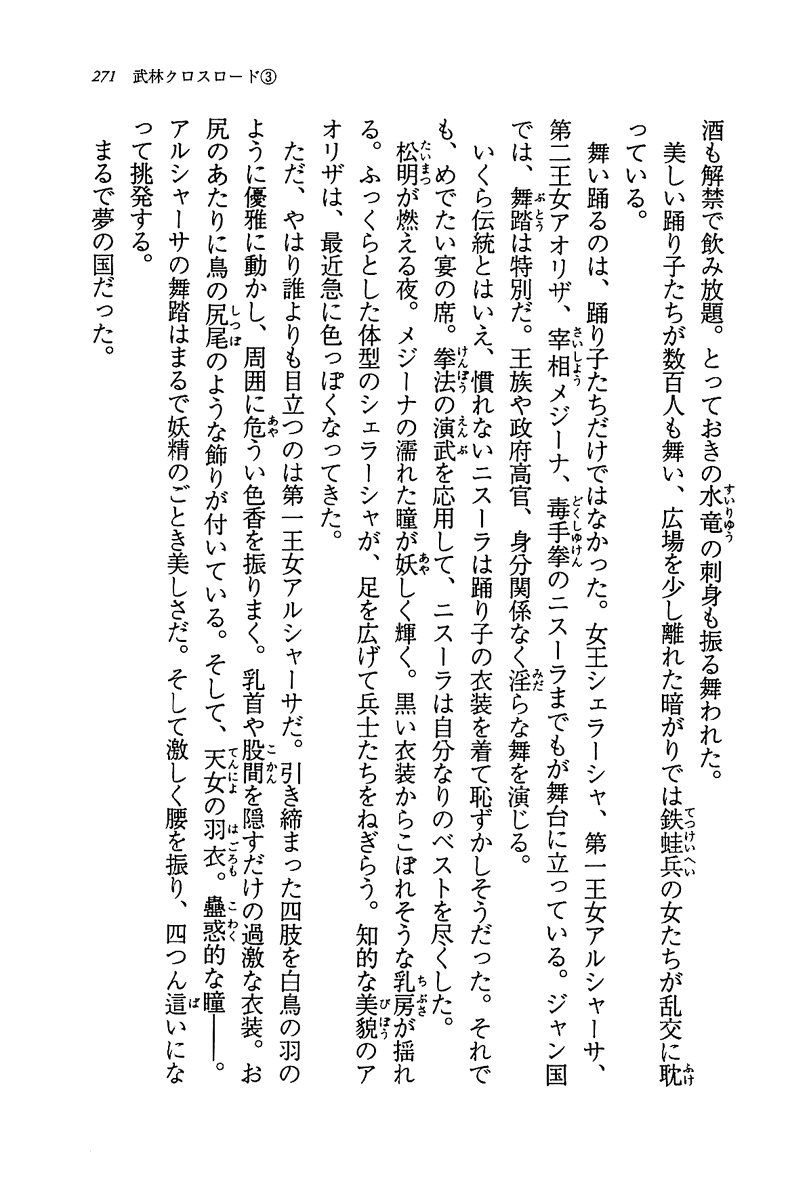 271　武林クロスロード③
酒も解禁で飲み放題。とっておきの水竜の刺身も振る舞われた。
　美しい踊り子たちが数百人も舞い、広場を少し離れた暗がりでは鉄蛙兵の女たちが乱交に耽
っている。
　舞い踊るのは、踊り子たちだけではなかった。女王シェラーシャ、第一王女アルシャーサ、
第二王女アオリザ、宰相メジーナ、毒手拳のニスーラまでもが舞台に立っている。ジャン国
では、舞踏は特別だ。王族や政府高官、身分関係なく淫らな舞を演じる。
　いくら伝統とはいえ、慣れないニスーラは踊り子の衣装を着て恥ずかしそうだった。それで
も、めでたい宴の席。拳法の演武を応用して、ニスーラは自分なりのベストを尽くした。
　松明が燃える夜。メジーナの濡れた瞳が妖しく輝く。黒い衣装からこぼれそうな乳房が揺れ
る。ふっくらとした体型のシェラーシャが、足を広げて兵士たちをねぎらう。知的な美貌のア
オリザは、最近急に色っぽくなってきた。
　ただ、やはり誰よりも目立つのは第一王女アルシャーサだ。引き締まった四肢を白鳥の羽の
ように優雅に動かし、周囲に危うい色香を振りまく。乳首や股間を隠すだけの過激な衣装。お
尻のあたりに鳥の尻尾のような飾りが付いている。そして、天女の羽衣。蠱惑的な瞳――。
アルシャーサの舞踏はまるで妖精のごとき美しさだ。そして激しく腰を振り、四つん這いにな
って挑発する。
　まるで夢の国だった。